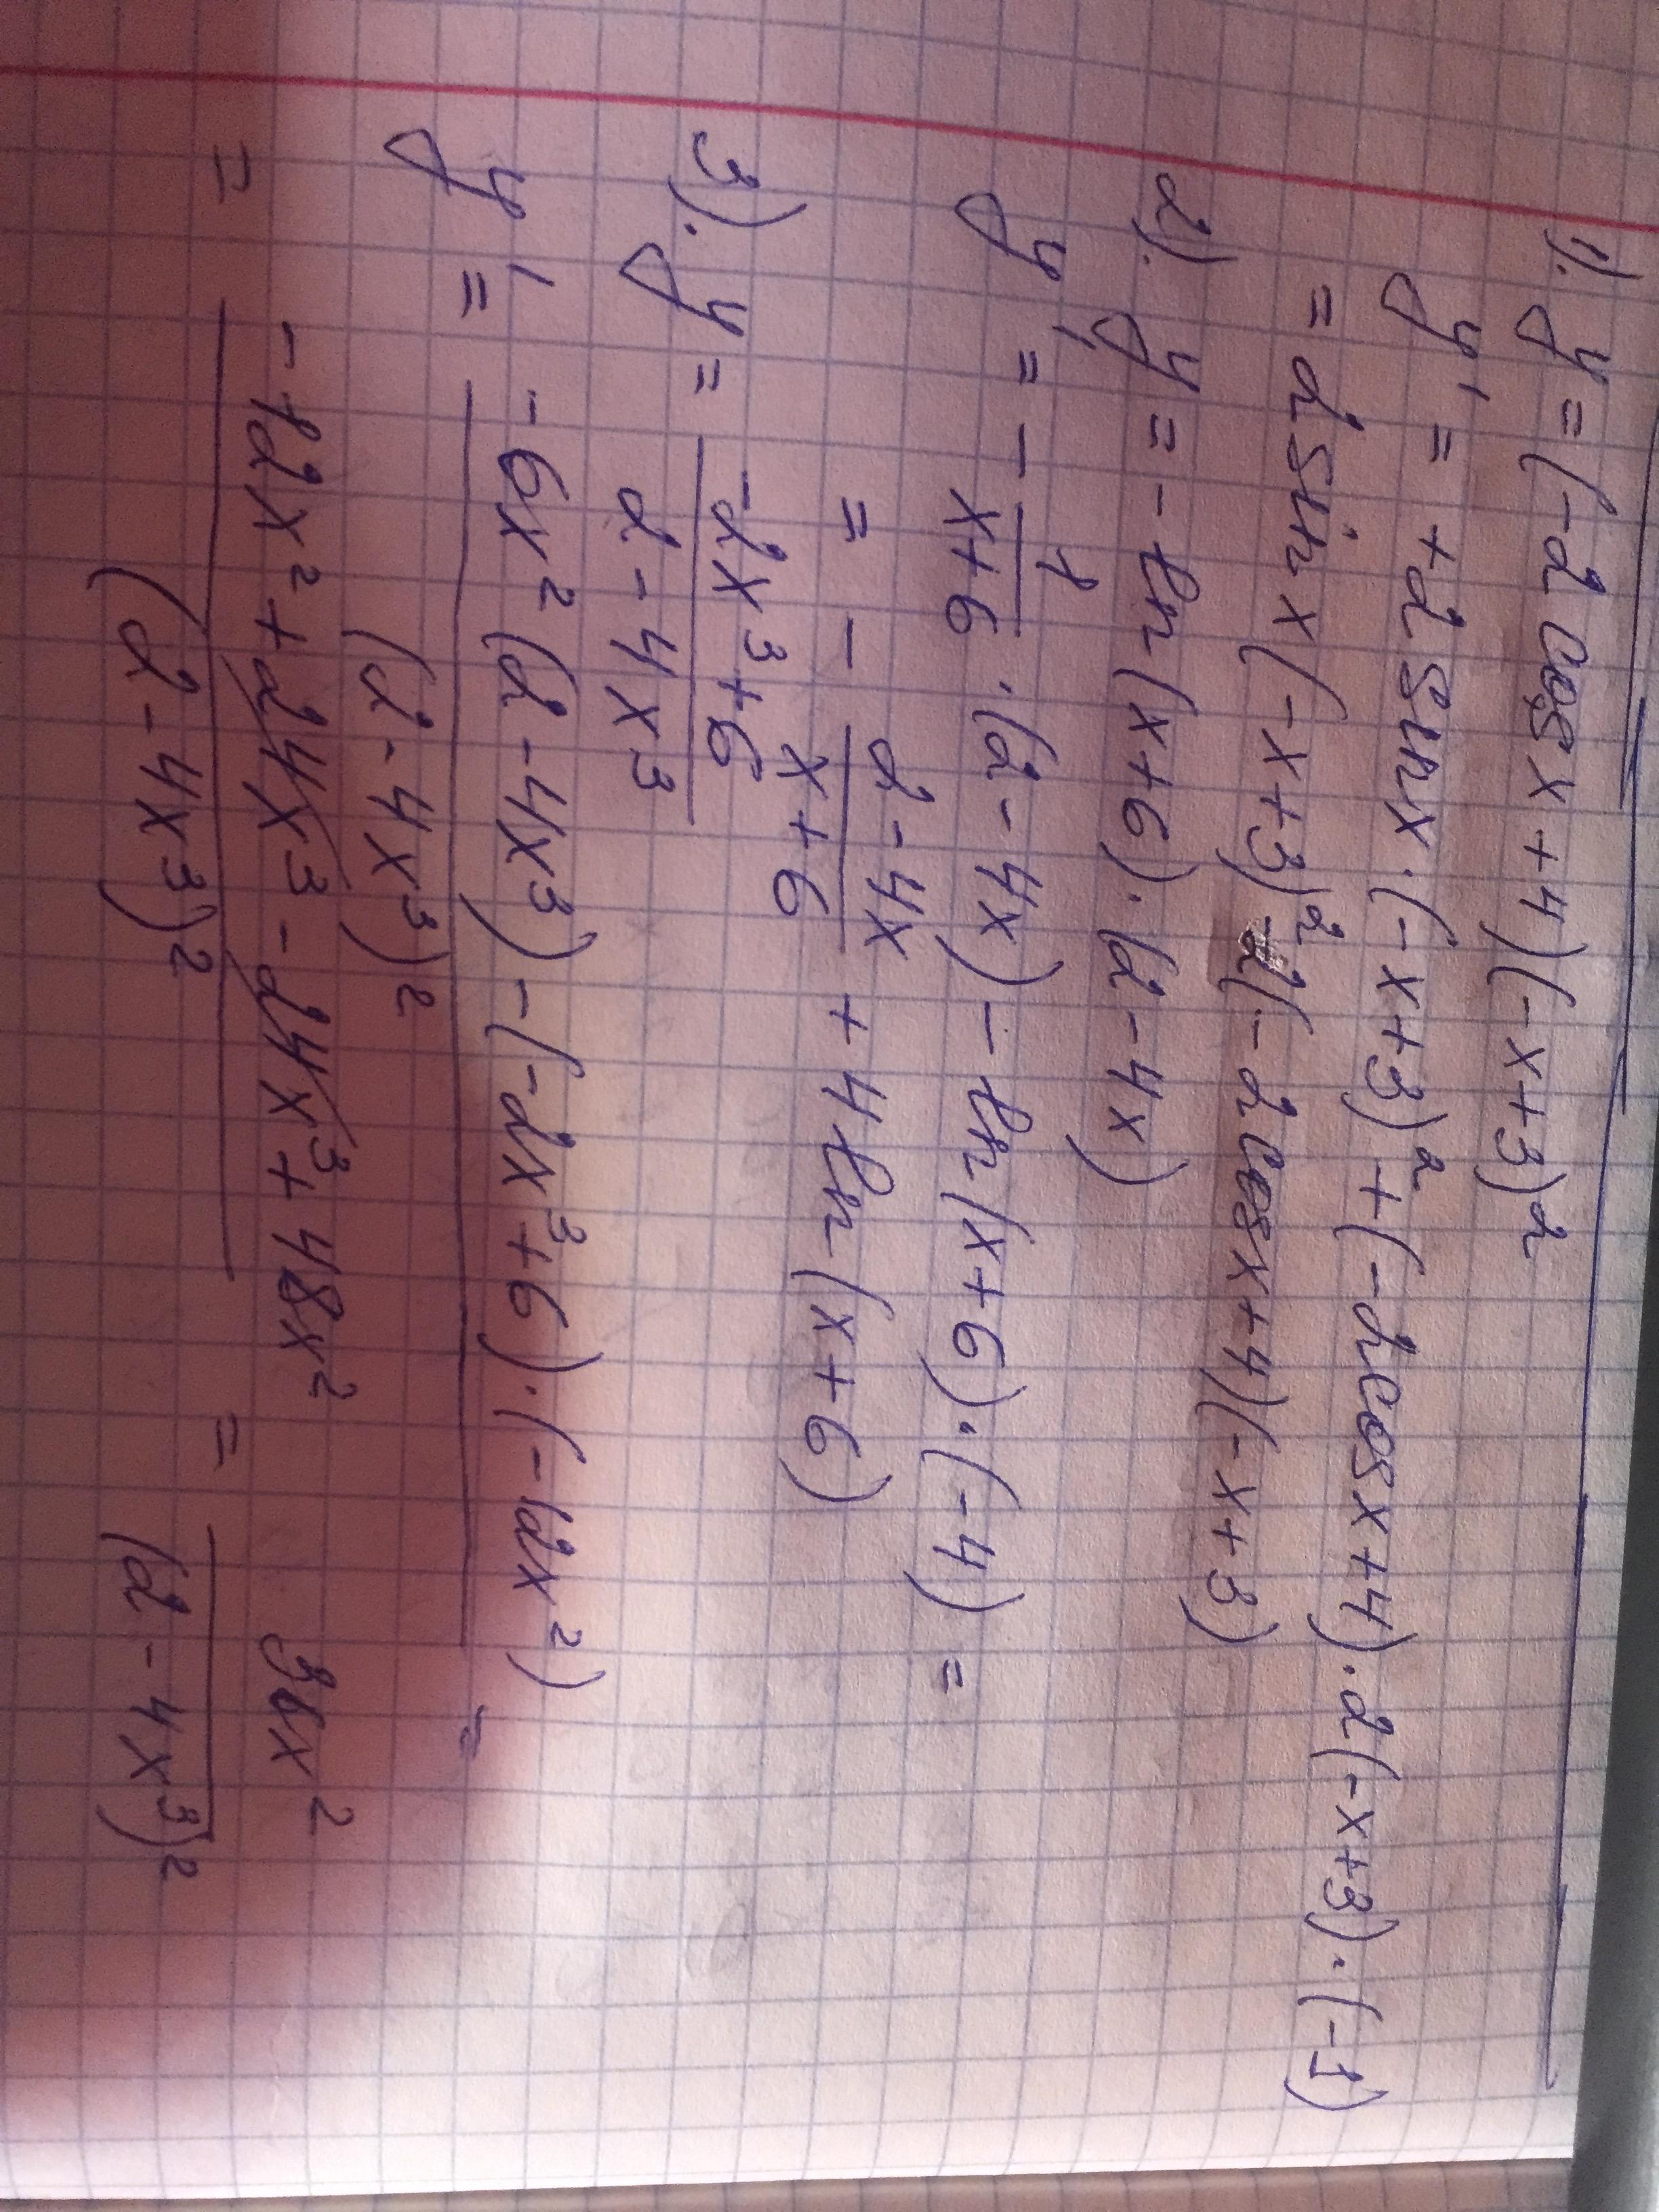 1). y = (-2 cos x + 4)(-x+3)²
y' = +2 sin x · (-x+3)² + (-2cos x + 4) · 2(-x+3) · (-1)
= 2 sin x (-x+3)² -2(-2cos x + 4)(-x+3)
2). y = - ln (x+6) · (2 - 4x)
y' = - 1/(x+6) · (2 - 4x) - ln (x+6) · (-4) =
= - (2 - 4x)/(x+6) + 4 ln (x+6)
3). y = (-2x³ + 6)/(2 - 4x³)
y' = (-6x² (2 - 4x³) - (-2x³ + 6) · (-12x²))/(2 - 4x³)² =
= (-12x² + 24x³ - 24x³ + 48x²)/(2 - 4x³)² = 36x²/(2 - 4x³)²